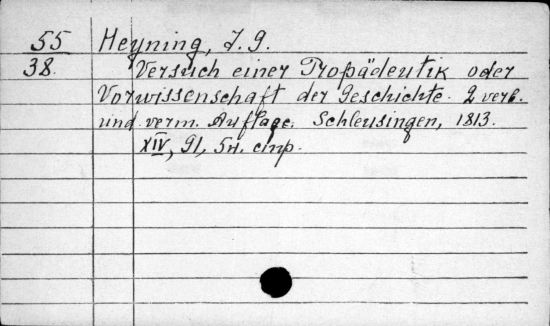 55 Heyning, J. G.
38. Versuch einer Propädeutik oder
Vorwissenschaft der Geschichte. 2 verb.
und verm. Auflage. Schleusingen, 1813.
XIV, 91, 5н. стр.